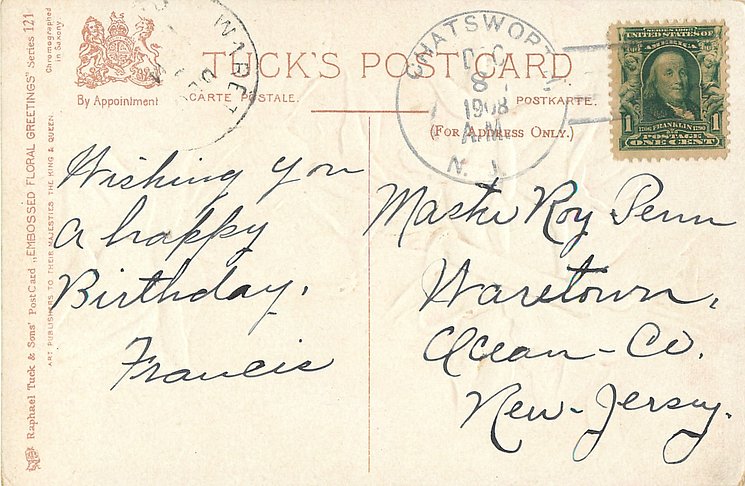 Raphael Tuck & Sons' PostCard „EMBOSSED FLORAL GREETINGS" Series 121
ART PUBLISHERS TO THEIR MAJESTIES THE KING & QUEEN.
Chromographed
in Saxony
By Appointment
TUCK'S POST CARD
CARTE POSTALE.
POSTKARTE.
(FOR ADDRESS ONLY.)
WARET
CHATSWORTH
8
1908
A.M.
N. J.
SERIES 1902
UNITED STATES OF
AMERICA
1706 FRANKLIN 1790
POSTAGE
1
1
ONE CENT
Wishing you
a happy
Birthday.
Francis
Master Roy Penn
Waretown,
Ocean-Co.
New-Jersey.